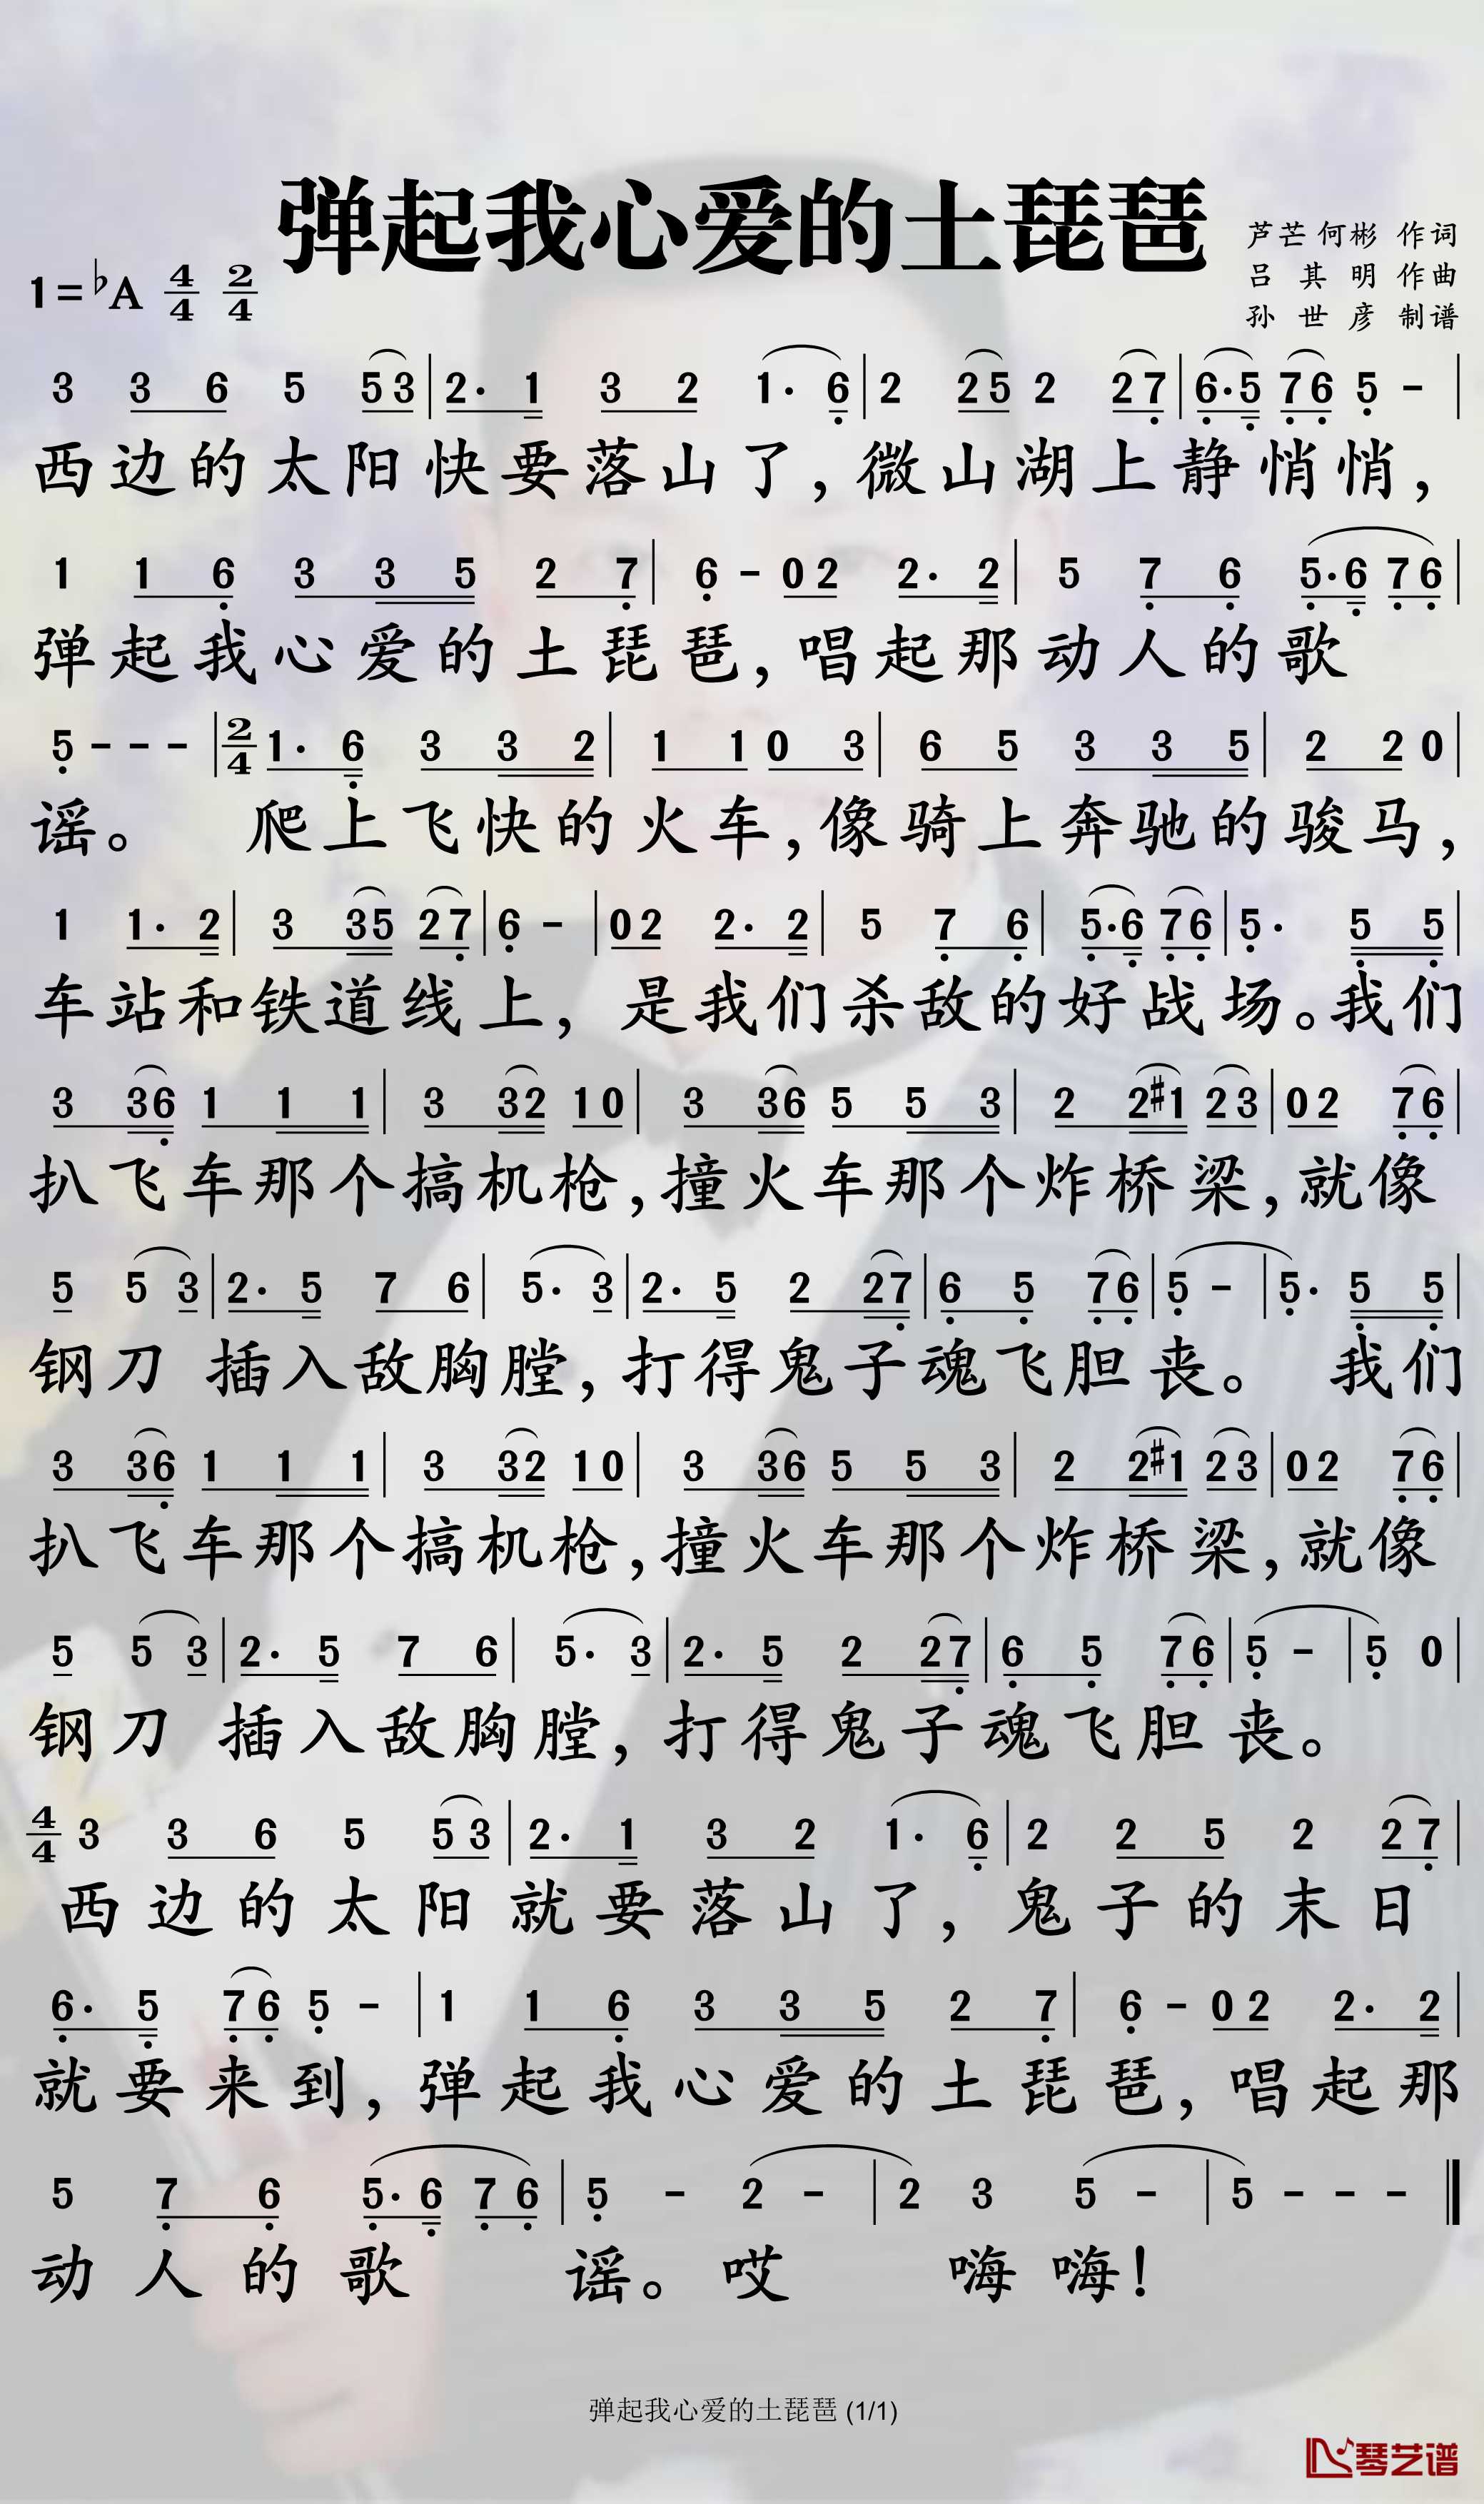 弹起我心爱的土琵琶
芦芒 何彬 作词
1=♭A 4/4 2/4
吕其明 作曲
孙世彦 制谱
3 3 6 5 5 3 | 2· 1 3 2 1· 6 | 2 2 5 2 2 7 | 6· 5 7 6 5 - |
西边的太阳快要落山了,微山湖上静悄悄,
1 1 6 3 3 5 2 7 | 6 - 0 2 2· 2 | 5 7 6 5· 6 7 6 |
弹起我心爱的土琵琶,唱起那动人的歌
5 - - - | 2/4 1· 6 3 3 2 | 1 1 0 3 | 6 5 3 3 5 | 2 2 0 |
谣。 爬上飞快的火车,像骑上奔驰的骏马,
1 1· 2 | 3 3 5 2 7 | 6 - | 0 2 2· 2 | 5 7 6 | 5· 6 7 6 | 5· 5 5 |
车站和铁道线上,是我们杀敌的好战场。我们
3 3 6 1 1 1 | 3 3 2 1 0 | 3 3 6 5 5 3 | 2 2 #1 2 3 | 0 2 7 6 |
扒飞车那个搞机枪,撞火车那个炸桥梁,就像
5 5 3 | 2· 5 7 6 | 5· 3 | 2· 5 2 2 7 | 6 5 7 6 | 5 - | 5· 5 5 |
钢刀 插入敌胸膛,打得鬼子魂飞胆丧。 我们
3 3 6 1 1 1 | 3 3 2 1 0 | 3 3 6 5 5 3 | 2 2 #1 2 3 | 0 2 7 6 |
扒飞车那个搞机枪,撞火车那个炸桥梁,就像
5 5 3 | 2· 5 7 6 | 5· 3 | 2· 5 2 2 7 | 6 5 7 6 | 5 - | 5 0 |
钢刀 插入敌胸膛,打得鬼子魂飞胆丧。
4/4 3 3 6 5 5 3 | 2· 1 3 2 1· 6 | 2 2 5 2 2 7 |
西边的太阳就要落山了,鬼子的末日
6· 5 7 6 5 - | 1 1 6 3 3 5 2 7 | 6 - 0 2 2· 2 |
就要来到,弹起我心爱的土琵琶,唱起那
5 7 6 5· 6 7 6 | 5 - 2 - | 2 3 5 - | 5 - - - ‖
动人的歌 谣。哎 嗨嗨!
弹起我心爱的土琵琶 (1/1)
琴艺谱